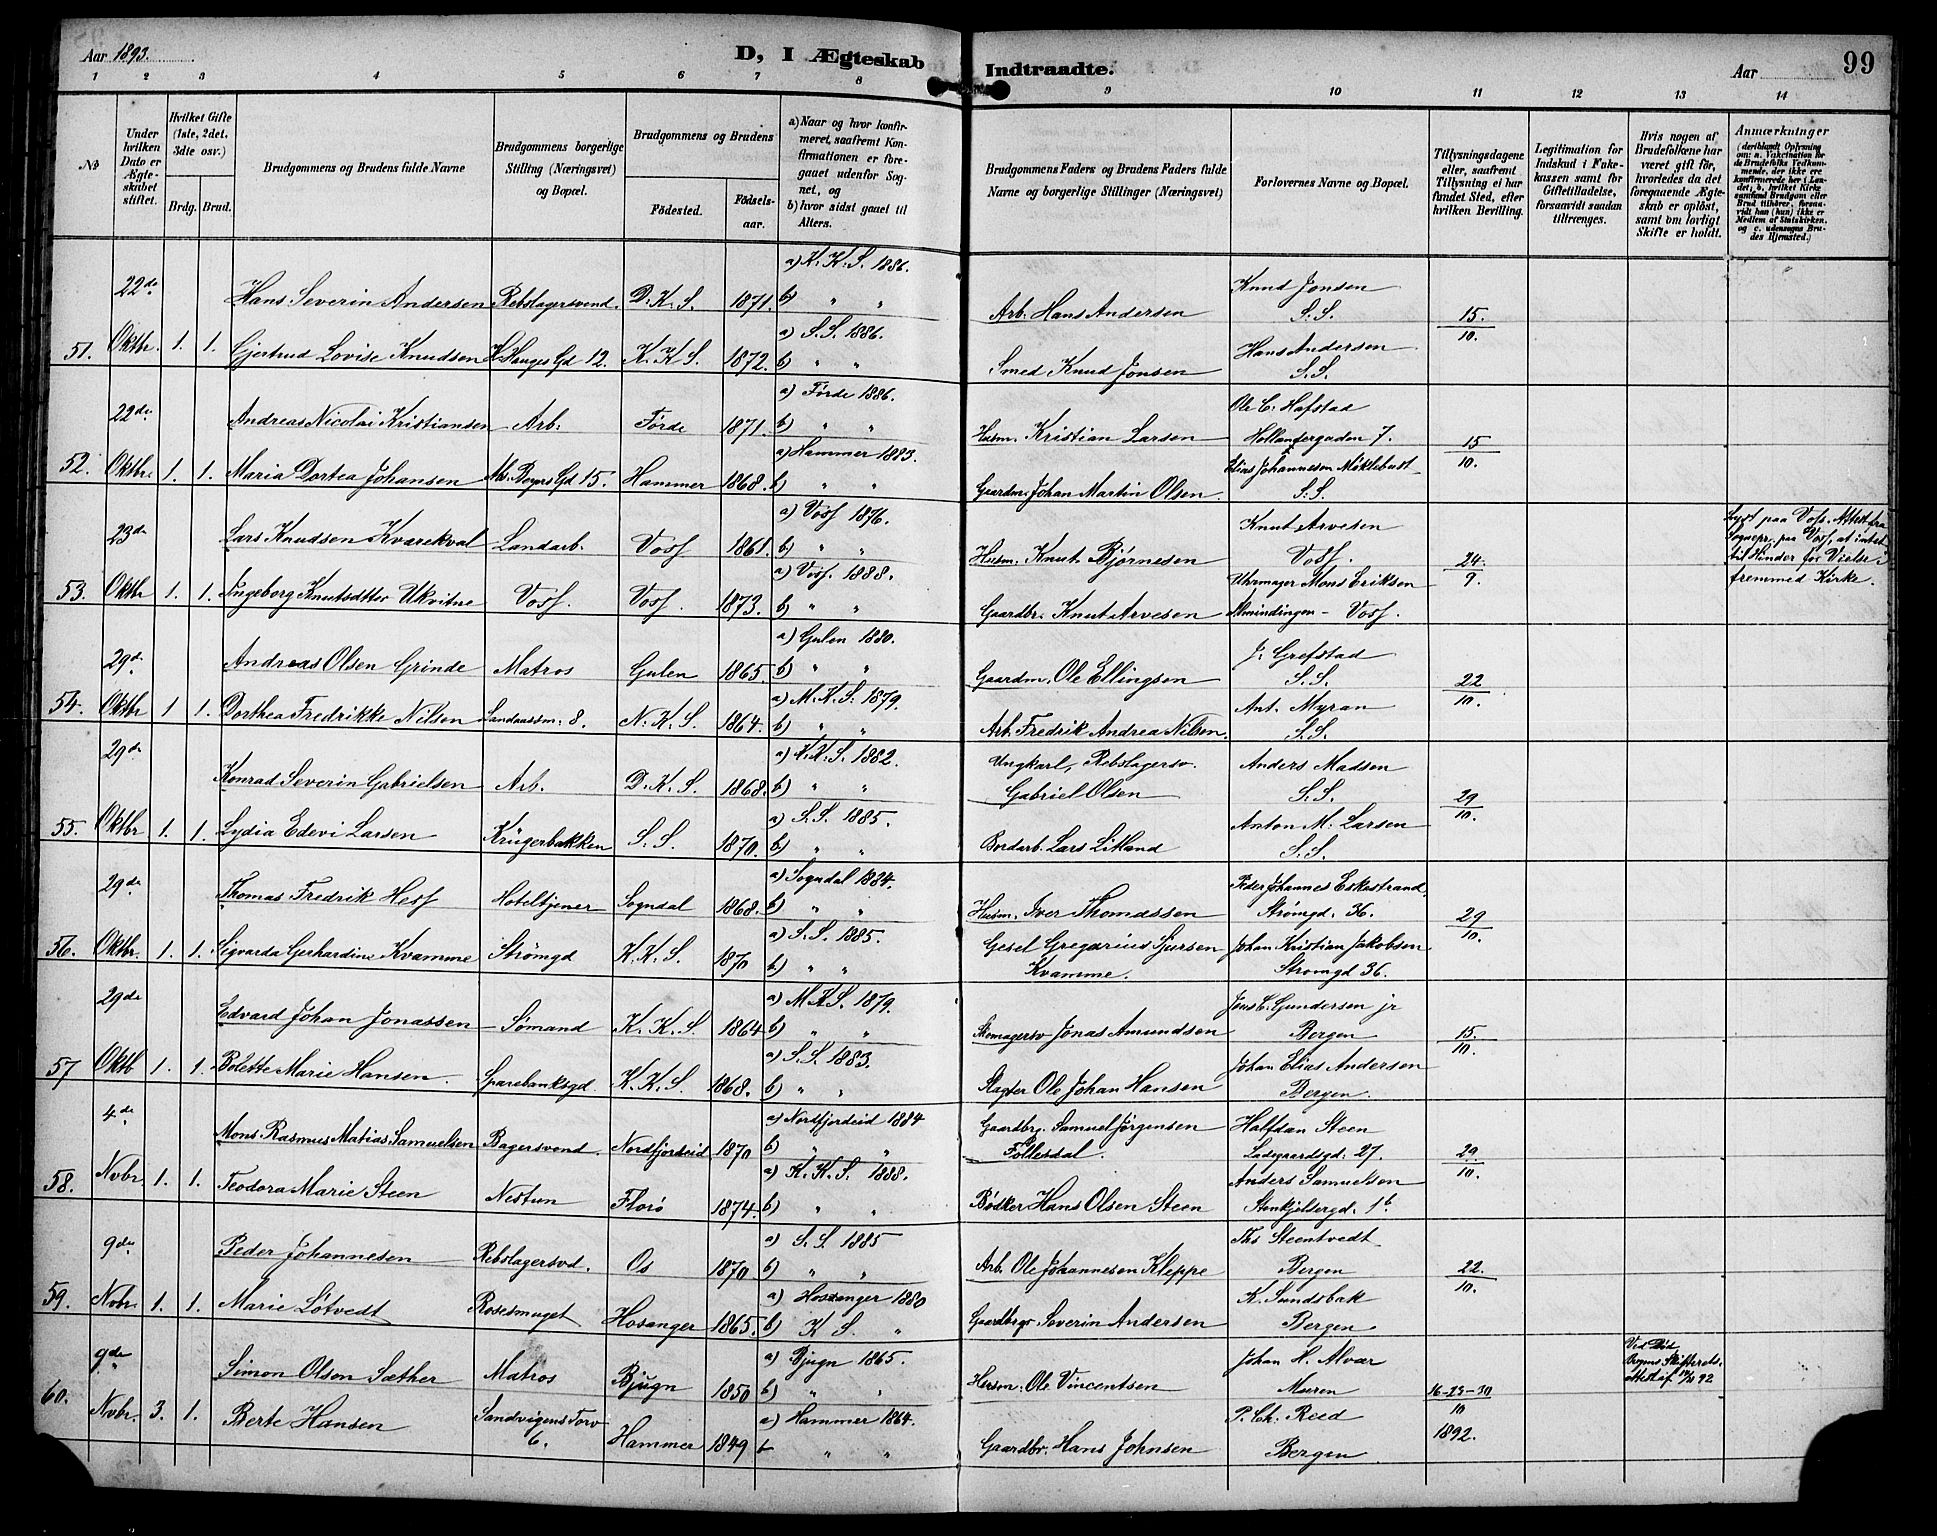 Aar 1893.
D, I Ægteskab Indtraadte.
Aar 99
1 2 3 4 5 6 7 8 9 10 11 12 13 14
No
Under hvilken Dato er Ægteskabet stiftet.
Hvilket Gifte (1ste, 2det, 3die osv.)
Brdg. Brud.
Brudgommens og Brudens fulde Navne
Brudgommens borgerlige Stilling (Næringsvei) og Bopæl.
Brudgommens og Brudens
Födested. Födselsaar.
a) Naar og hvor konfirmeret, saafremt Konfirmationen er foregaaet udenfor Sognet, og
b) hvor sidst gaaet til Alters.
Brudgommens Faders og Brudens Faders fulde Navne og borgerlige Stillinger (Næringsvei)
Forlovernes Navne og Bopæl.
Tillysningsdagene eller, saafremt Tillysning ei har fundet Sted, efter hvilken Bevilling.
Legitimation for Indskud i Fukekassen samt for Giftetilladelse, forsaavidt saadan tiltrænges.
Hvis nogen af Brudefolkene har været gift för, hvorledes da det foregaaende Ægteskab er oplöst, samt om lovligt Skifte er holdt.
Anmærkninger (deriblandt Oplysning om: a. Vakcination for de Brudefolks Vedkommende, der ikke ere konfirmerede her i Landet; b. hvilket Kirkesamfund Brudgom eller Brud tilhörer, forsaavidt han (hun) ikke er Medlem af Statskirken, og c. udensogns Brudes Hjemsted.)
22de Hans Severin Andersen Rebslagersvend. D. K. S. 1871. a) K. K. S. 1886. b) " " Arb. Hans Andersen Knud Jonsen S. S. 15./10.
51. Oktbr. 1. 1. Gjertrud Lovise Knudsen H. Hauges Gd 12. K. K. S. 1872. a) S. S. 1886. b) " " Smed Knud Jonsen Hans Andersen S. S.
22de Andreas Nicolai Kristiansen Arb. Førde 1871. a) Førde 1886. b) " " Husm. Kristian Larsen Ole C. Hafstad Hollendergaden 7. 15/10.
52. Oktbr. 1. 1. Maria Dortea Johansen Ms. Beyers Gd 15. Hammer 1868. a) Hammer 1883. b) " " Gaardm. Johan Martin Olsen. Elias Johannesen Myklebust S. S.
23de Lars Knudsen Kvarekval Landarb. Voss 1861. a) Voss 1876. b) " " Husm. Knut Bjørnesen Knut Arvesen Voss. 24./9. Lyst paa Voss. Attest fra Sognepr. paa Voss, at intet til Hinder for Vielse i fremmed Kirke.
53. Oktbr 1. 1. Ingeborg Knutsdtter Ukvitne Voss. Voss. 1873. a) Voss. 1888. b) " " Gaardbr. Knut Arvesen Uhrmager Mons Eriksen Almindingen – Voss.
29de Andreas Olsen Grinde Matros Gulen 1865 a) Gulen 1880. b) " " Gaardm. Ole Ellingsen J. Grefstad S. S. 22/10.
54. Oktbr 1 1. Dorthea Fredrikke Nilsen Landaassm. 8. N. K. S. 1864. a) M. K. S. 1879. b) " " Arb. Fredrik Andrea Nilsen. Ant. Myran S. S.
29de Konrad Severin Gabrielsen Arb. D. K. S. 1868. a) K. K. S. 1882. b) " " Ungkarl, Rebslagersv. Gabriel Olsen Anders Madsen S. S. 29/10.
55. Oktbr 1. 1. Lydia Edevi Larsen Krügerbakken S. S. 1870. a) S. S. 1885. b) " " Bordarb. Lars Litland Anton M. Larsen S. S.
29de Thomas Fredrik Hess Hoteltjener Sogndal 1868. a) Sogndal 1884. b) " " Husm. Iver Thomassen Peder Johannes Eskestrand Strømgd. 36. 29/10.
56. Oktbr. 1. 1. Sigvarda Gerhardine Kvamme Strømgd K. K. S. 1870 a) S. S. 1885. b) " " Gesel Gregorius Sjursen Kvamme. Johan Kristian Jakobsen Strømgd 36.
29de Edvard Johan Jonassen Sømand K. K. S. 1864 a) M. K. S. 1879. b) " " Skomagersv Jonas Amundsen Jens C. Gundersen jr Bergen 15./10.
57 Oktb 1. 1. Bolette Marie Hansen. Sparebanksgd. K. K. S. 1868. a) S. S. 1883. b) " " Slagter Ole Johan Hansen Johan Elias Andersen Bergen.
4de Mons Rasmus Matias Samuelsen Bagersvend. Nordfjordeid 1870 a) Nordfjordeid 1884 b) " " Gaardbr. Samuel Jørgensen Follesdal. Halfdan Steen Ladegaardsgd. 27. 29./10.
58. Novbr. 1. 1. Teodora Marie Steen Nestun Florø 1874. a) K. K. S. 1888. b) " " Bøsker Hans Olsen Steen Anders Samuelsen Stenkjeldergd. 1b
9de Peder Johannesen Rebslagersvd. Os 1870 a) S. S. 1885 b) " " Arb. Ole Johannesen Kleppe Ths Steentvedt Bergen 22./10.
59. Novbr. 1. 1. Marie Løtvedt Rosesmuget Hosanger 1865. a) Hosanger 1880 b) K. S. " Gaardbrgr Severin Andersen K. Sundsbak Bergen.
9de Simon Olson Sæther Matros Bjugn 1850 a) Bjugn 1865. b) " " Husm. Ole Vincentsen Johan H. Alvær Muren 16-23-30/10 1892. Ved Død Bergens Skifterets attest af 12/10 92
60. Novbr. 3. 1. Berte Hansen Sandvigens Torv 6. Hammer 1849 a) Hammer 1864. b " " Gaardbr. Hans Johnsen P. Ch. Reed Bergen